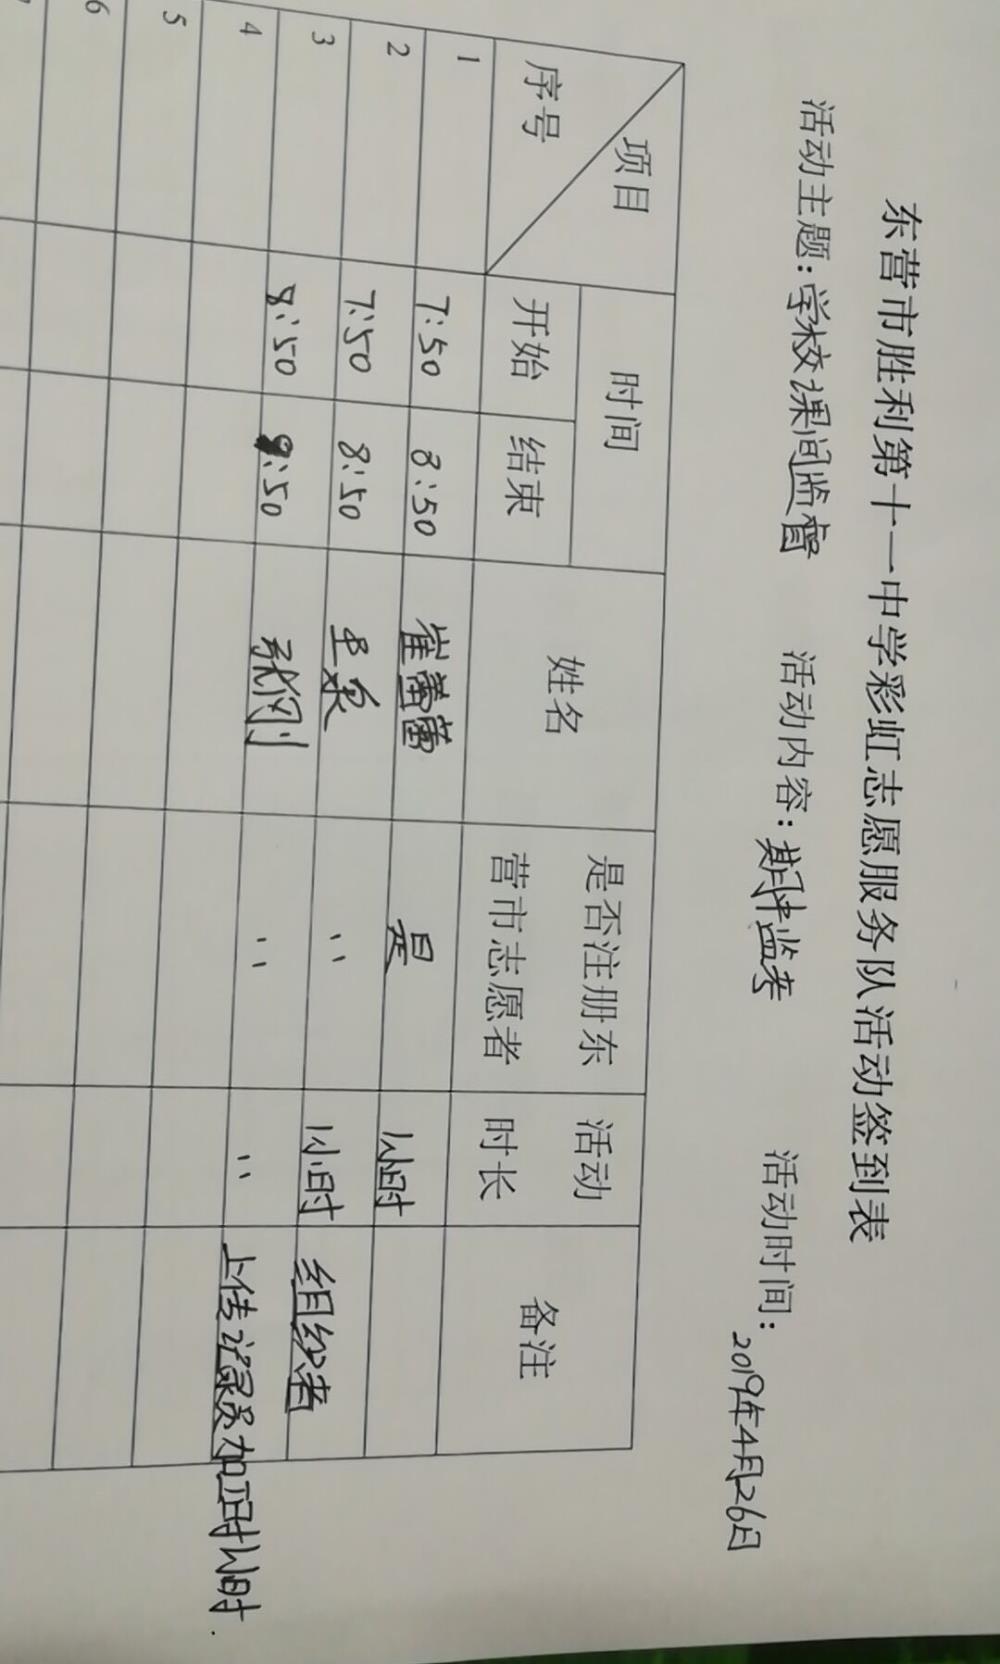 东营市胜利第十一中学彩虹志愿服务队活动签到表
活动主题：学校课间监督 活动内容：期中监考 活动时间：2019年4月26日
项目 时间 姓名 是否注册东营市志愿者 活动时长 备注
序号 开始 结束
1 7:50 8:50 崔蕾蕾 是 1小时
2 7:50 8:50 泉 〃 1小时 组织者
3 8:50 9:50 张刚 〃 〃 上传记录员加 时1小时.
4
5
6